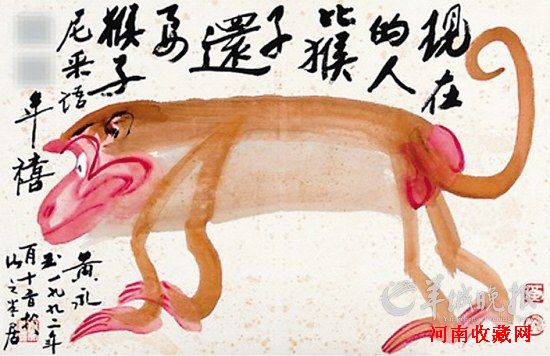 現在
的人
比猴
子
還
要
猴子
尼采语
年禧
黄永
玉一九九二年
山之半居
羊城晚报
河南收藏网